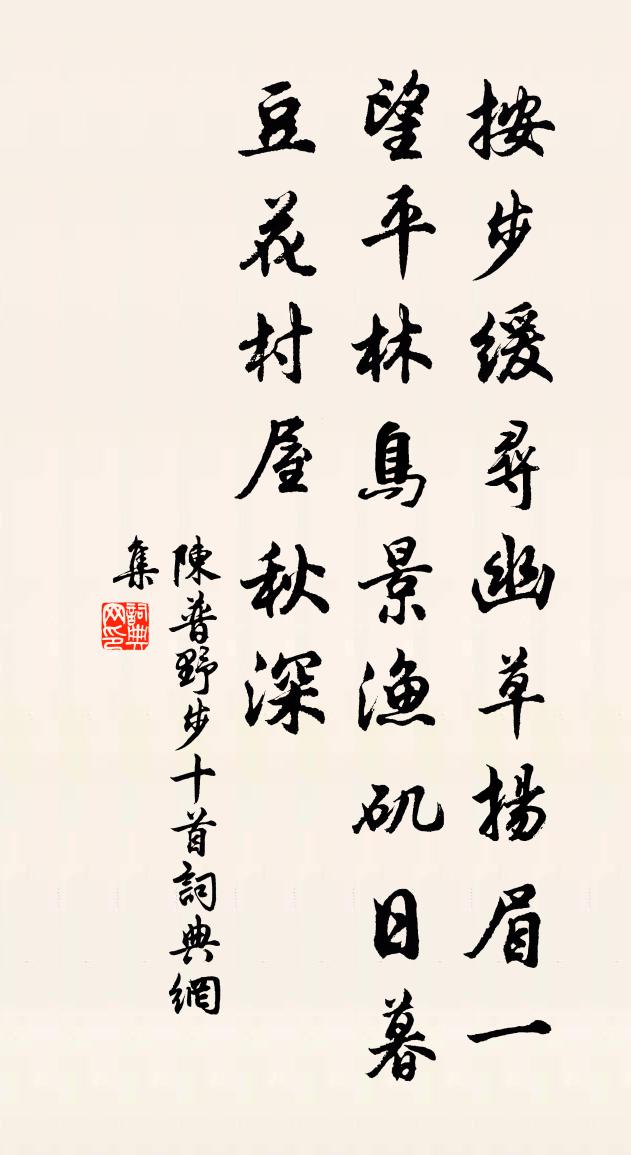 按步緩尋幽草揚眉一
望平林鳥景漁矶日暮
豆花村屋秋深
陳普野步十首詞典網
集
詞典
网印